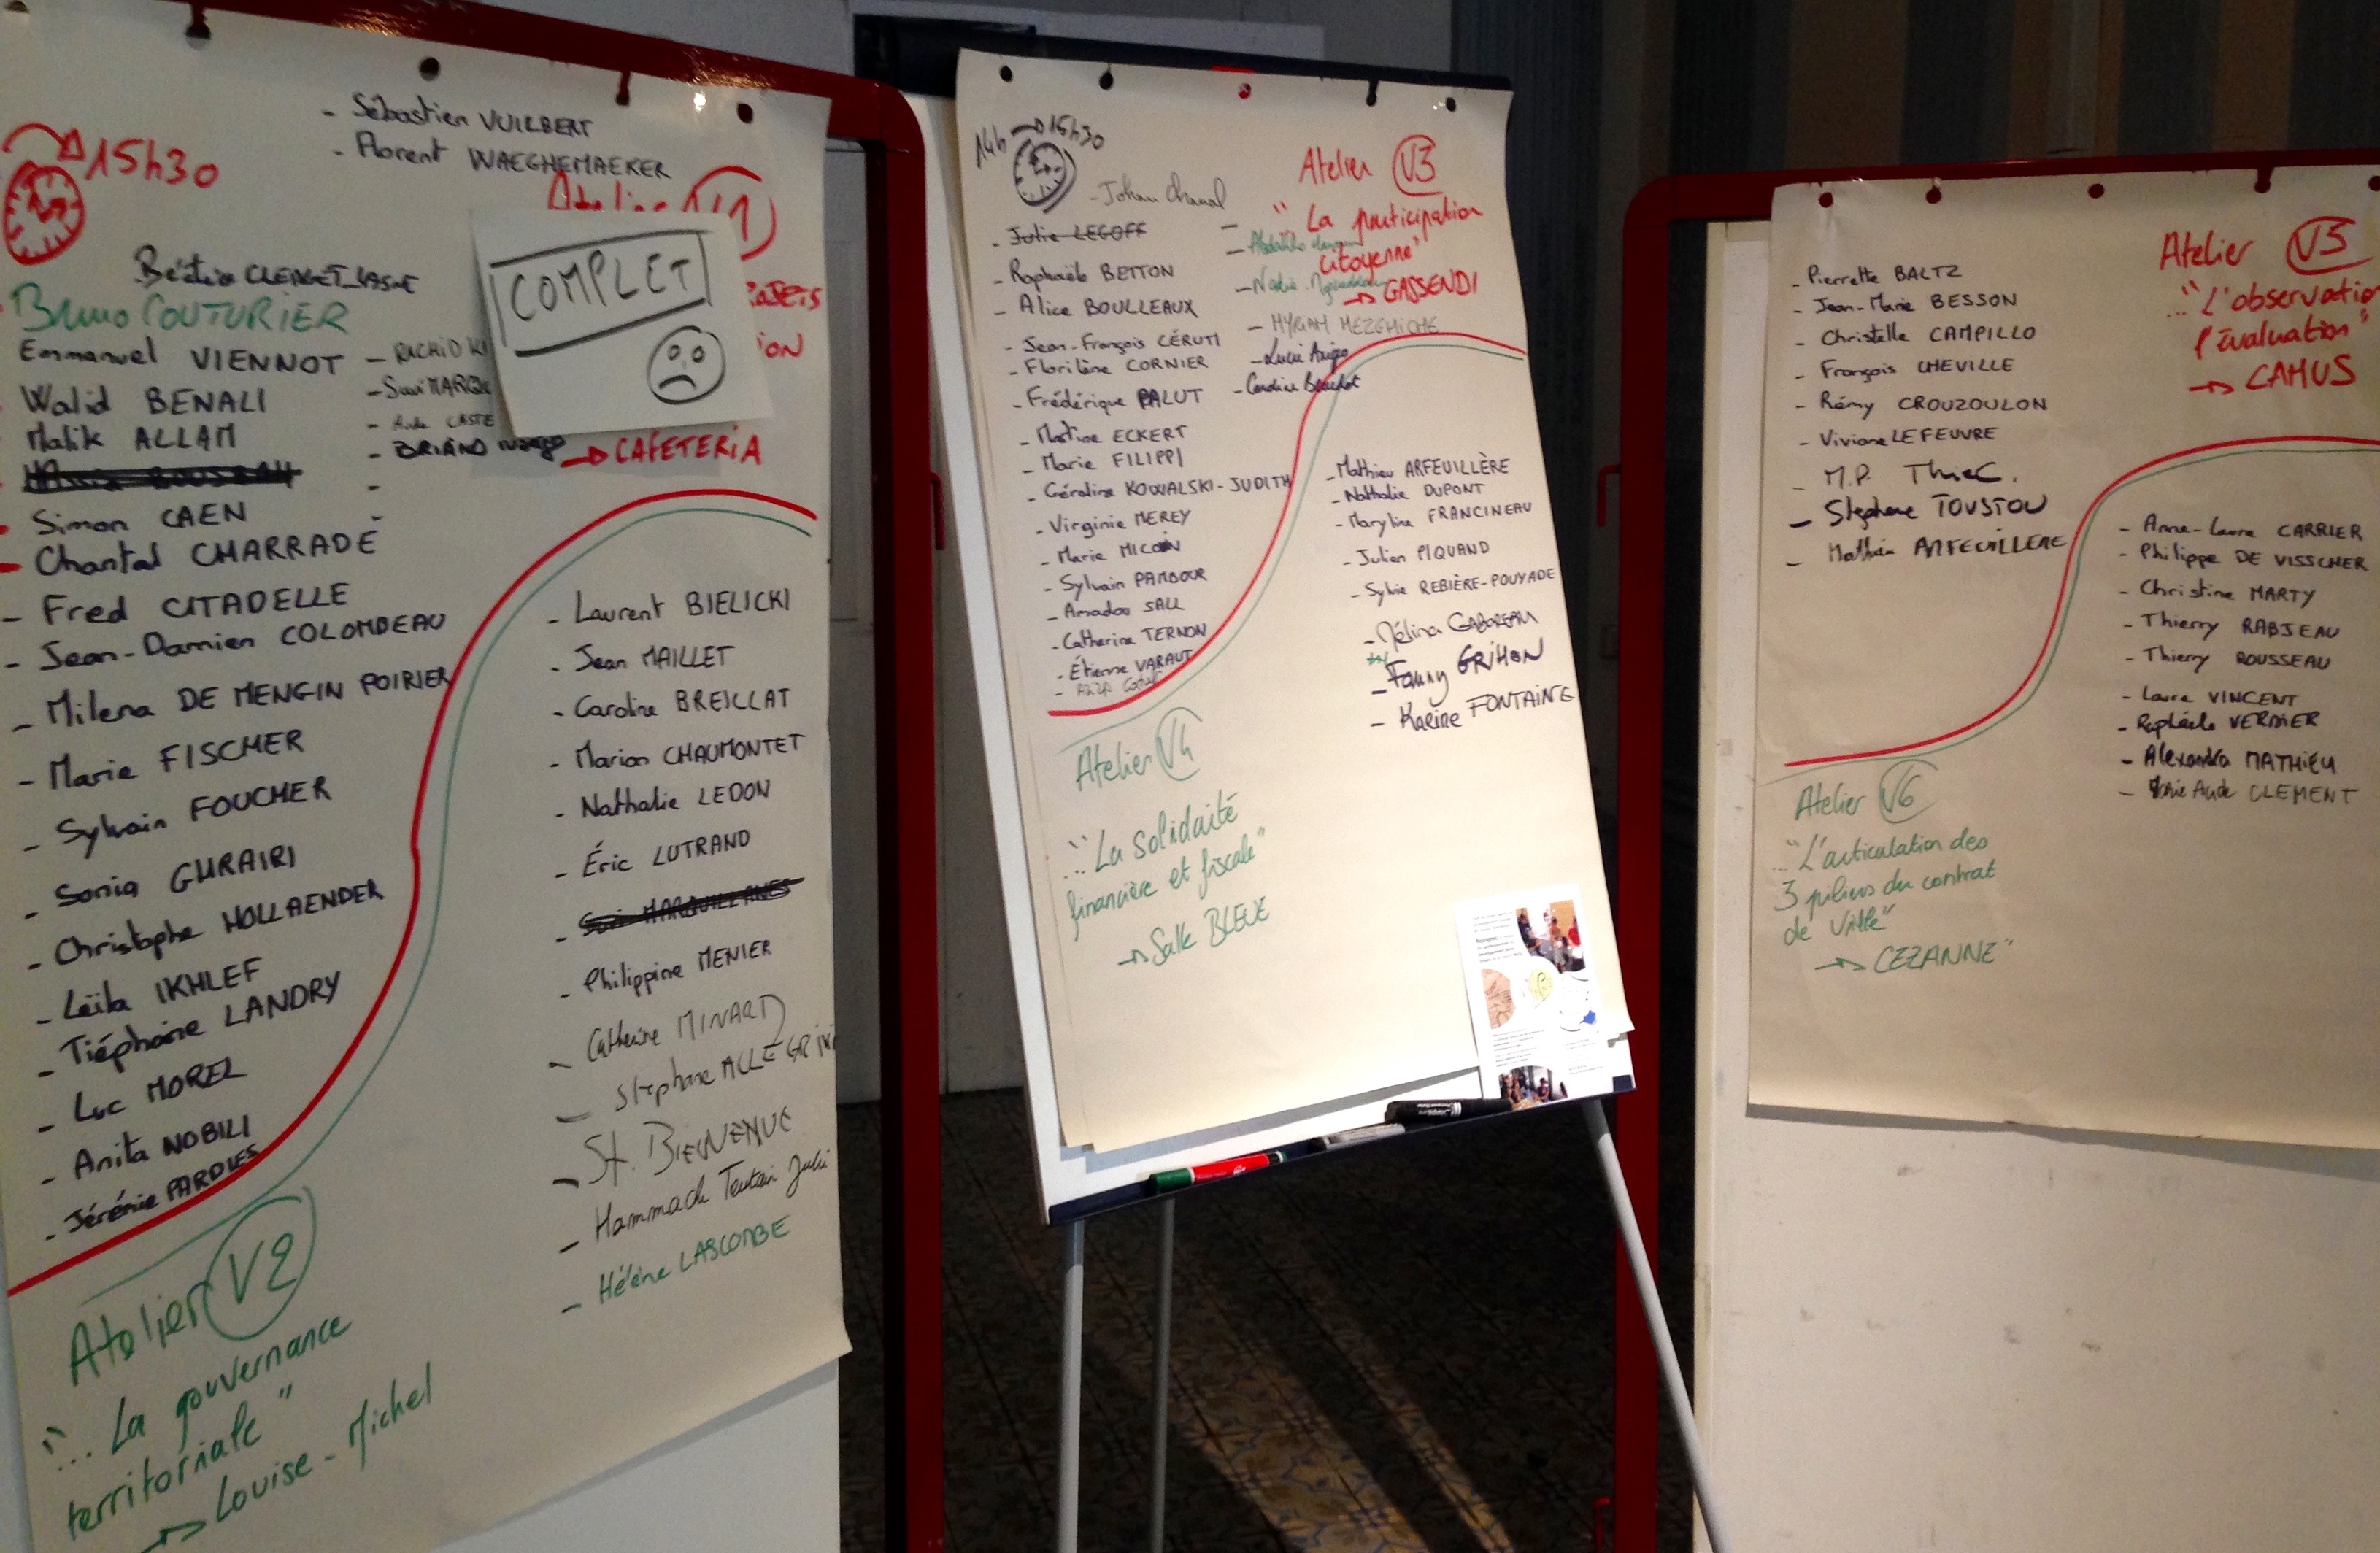 - Sébastien VUILBERT
- Florent WAEGHEMAEKER
15h30
Atelier V1
COMPLET
Béatrice
Bruno COUTURIER
Emmanuel VIENNOT
Walid BENALI
Malik ALLAM
Simon CAEN
Chantal CHARRADE
- Fred CITADELLE
- Jean-Damien COLOMBEAU
- Milena DE MENGIN POIRIER
- Marie FISCHER
- Sylvain FOUCHER
- Sonia GURAIRI
- Christophe HOLLAENDER
- Leïla IKHLEF
- Tiéphaine LANDRY
- Luc MOREL
- Anita NOBILI
- Jérémie PARDIES
- RACHID
- BRIAND
→ CAFETERIA
- Laurent BIELICKI
- Jean MAILLET
- Caroline BREILLAT
- Marion CHAUMONTET
- Nathalie LEDON
- Éric LUTRAND
- Philippine MENIER
- Catherine MINARD
- Stephane ALLEGRINI
- St. BIENVENUE
- Hammach Teutain Julie
- Hélène LASCOMBE
Atelier V2
"... La gouvernance
territoriale"
→ Louise-Michel
14h
15h30
Atelier V3
"La participation
citoyenne"
→ GASSENDI
- Johan Chanal
- Julie LEGOFF
- Raphaële BETTON
- Alice BOULLEAUX
- Jean-François CÉRUTI
- Florilène CORNIER
- Frédérique PALUT
- Martine ECKERT
- Marie FILIPPI
- Géraldine KOWALSKI-JUDITH
- Virginie MEREY
- Marie
- Sylvain PAMBOUR
- Amadou SALL
- Catherine TERNON
- Étienne VARAUT
- MYRIAM MEZGHICHE
- Lucie
- Caroline
- Mathieu ARFEUILLÈRE
- Nathalie DUPONT
- Maryline FRANCINEAU
- Julien PIQUAND
- Sylvie REBIÈRE-POUYADE
- Mélina GABOREAU
- Fanny GRIMON
- Karine FONTAINE
Atelier V4
"... La solidaité
financière et fiscale"
→ Salle BLEUE
Atelier V5
"... L'observation
l'évaluation"
→ CAMUS
- Pierrette BALTZ
- Jean-Marie BESSON
- Christelle CAMPILLO
- François CHEVILLE
- Rémy CROUZOULON
- Viviane LEFEUVRE
- M.P. Thiec.
- Stephane TOUSTOU
- Mathieu ARFEUILLERE
- Anne-Laure CARRIER
- Philippe DE VISSCHER
- Christine MARTY
- Thierry RABJEAU
- Thierry ROUSSEAU
- Laure VINCENT
- Raphaële VERDIER
- Alexandra MATHIEU
- Marie Aude CLEMENT
Atelier V6
"... L'articulation des
3 piliers du contrat
de Ville"
→ CEZANNE"